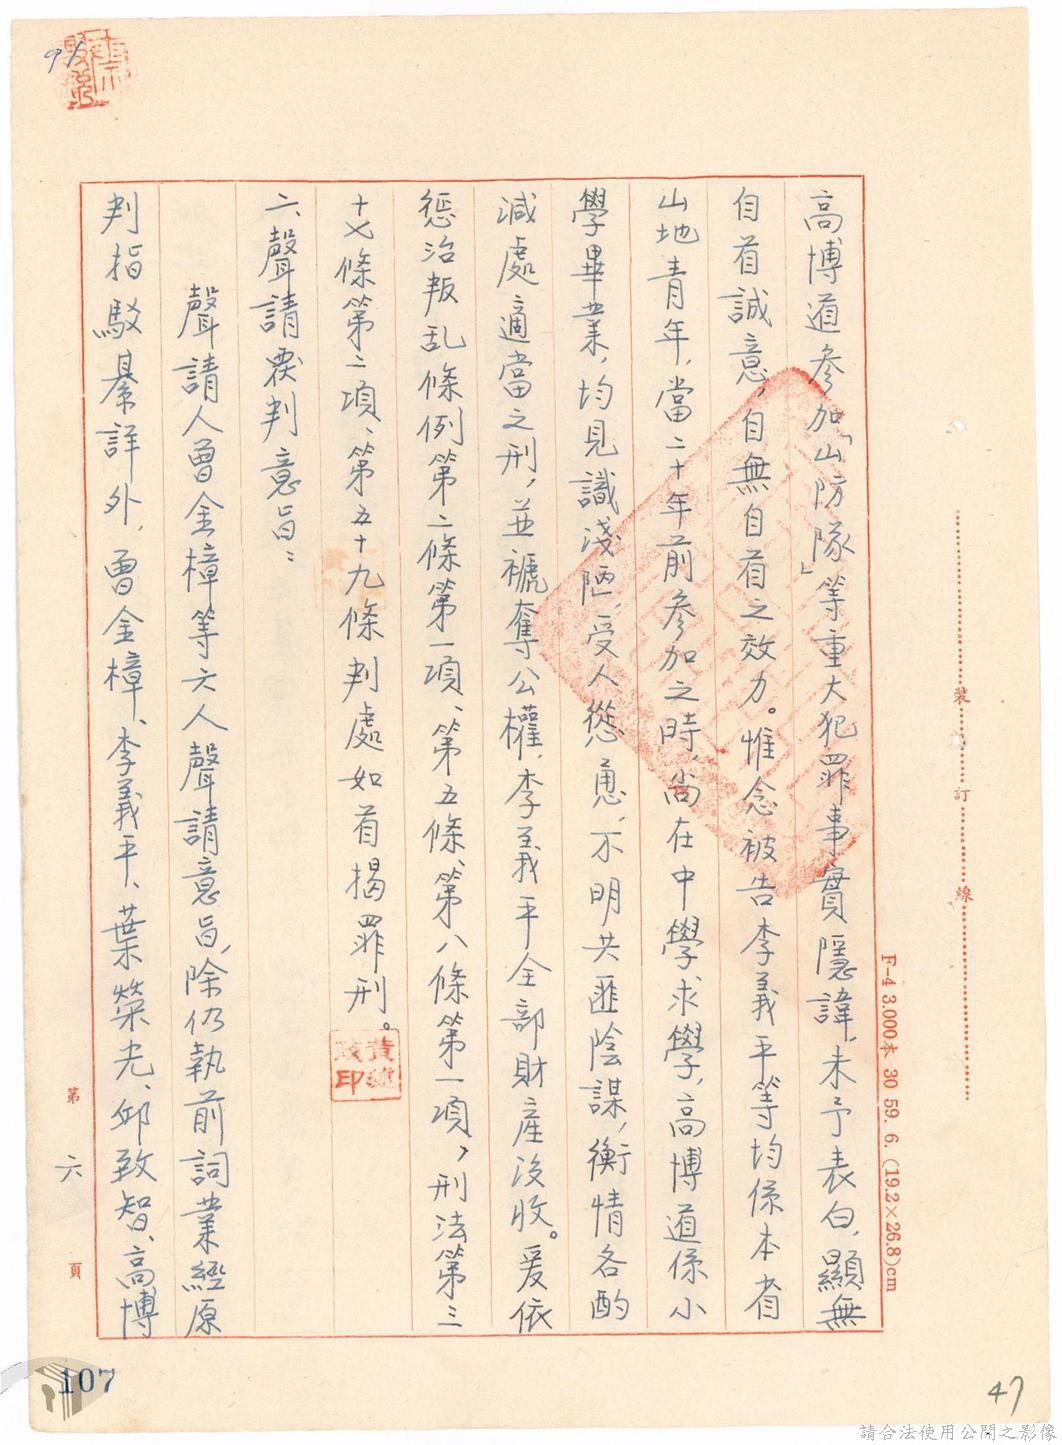 高博道參加「山防隊」等重大犯罪事實隱諱，未予表白，顯無
自首誠意，自無自首之效力。惟念被告李義平等均係本省
山地青年，當二十年前參加之時，尚在中學求學，高博道係小
學畢業，均見識淺陋，受人慫恿，不明共匪陰謀，衡情各酌
減處適當之刑，並褫奪公權，李義平全部財產沒收。爰依
懲治叛乱條例第二條第一項、第五條、第八條第一項，刑法第三
十七條第二項、第五十九條判處如首揭罪刑。
黃
印
二、聲請覆判意旨：
聲請人曾金樟等六人聲請意旨，除仍執前詞業經原
判指駁綦詳外，曾金樟、李義平、葉榮光、邱致智、高博
第六頁
裝訂線
F-4 3.000本 30 59. 6. (19.2×26.8)cm
107
47
請合法使用公開之影像